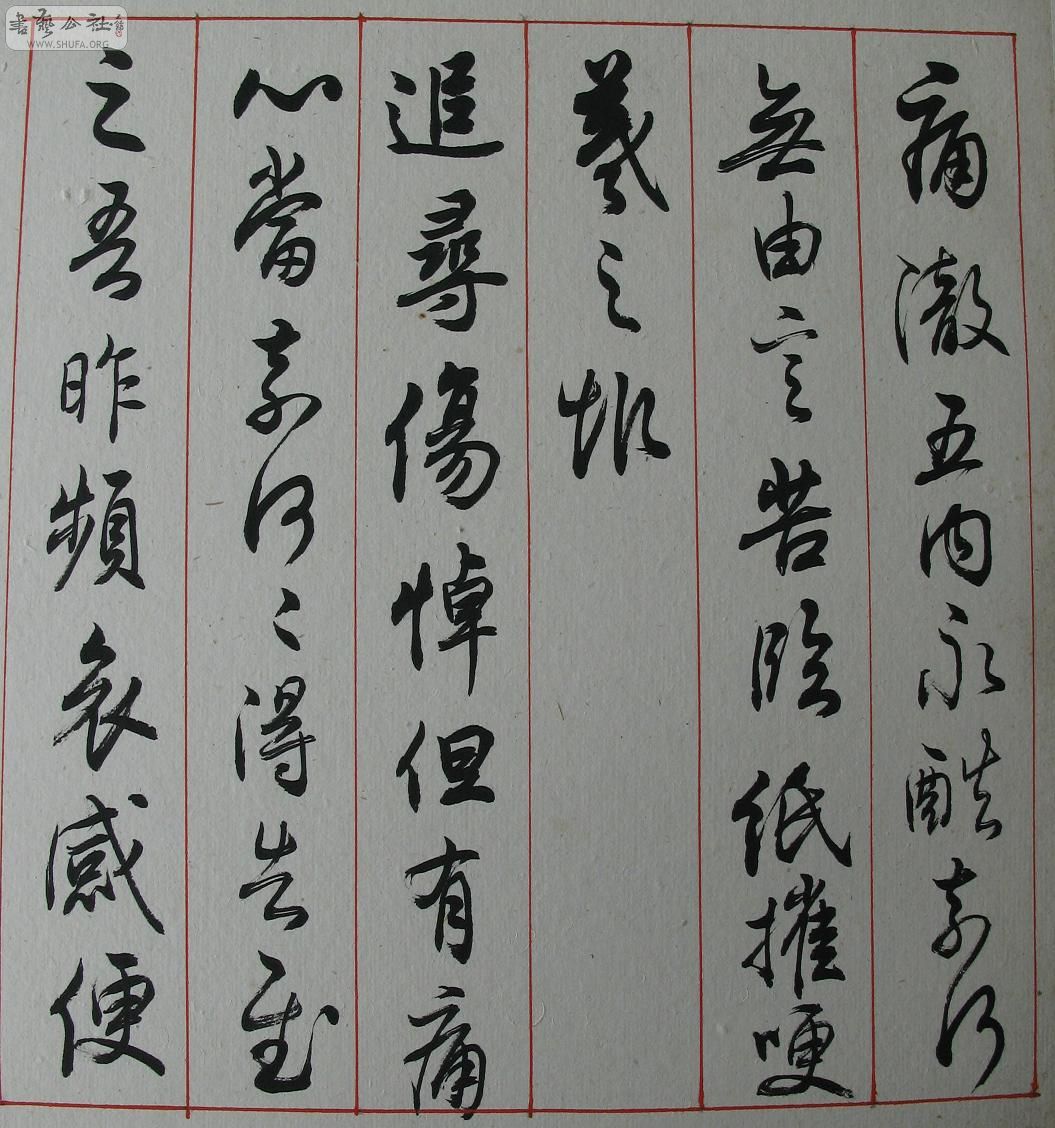 書藝公社
WWW.SHUFA.ORG
痛澈五內永酷奈何
無由言苦臨紙摧哽
羲之報
追尋傷悼但有痛
心當奈何〻得告慰
之吾昨頻哀感便